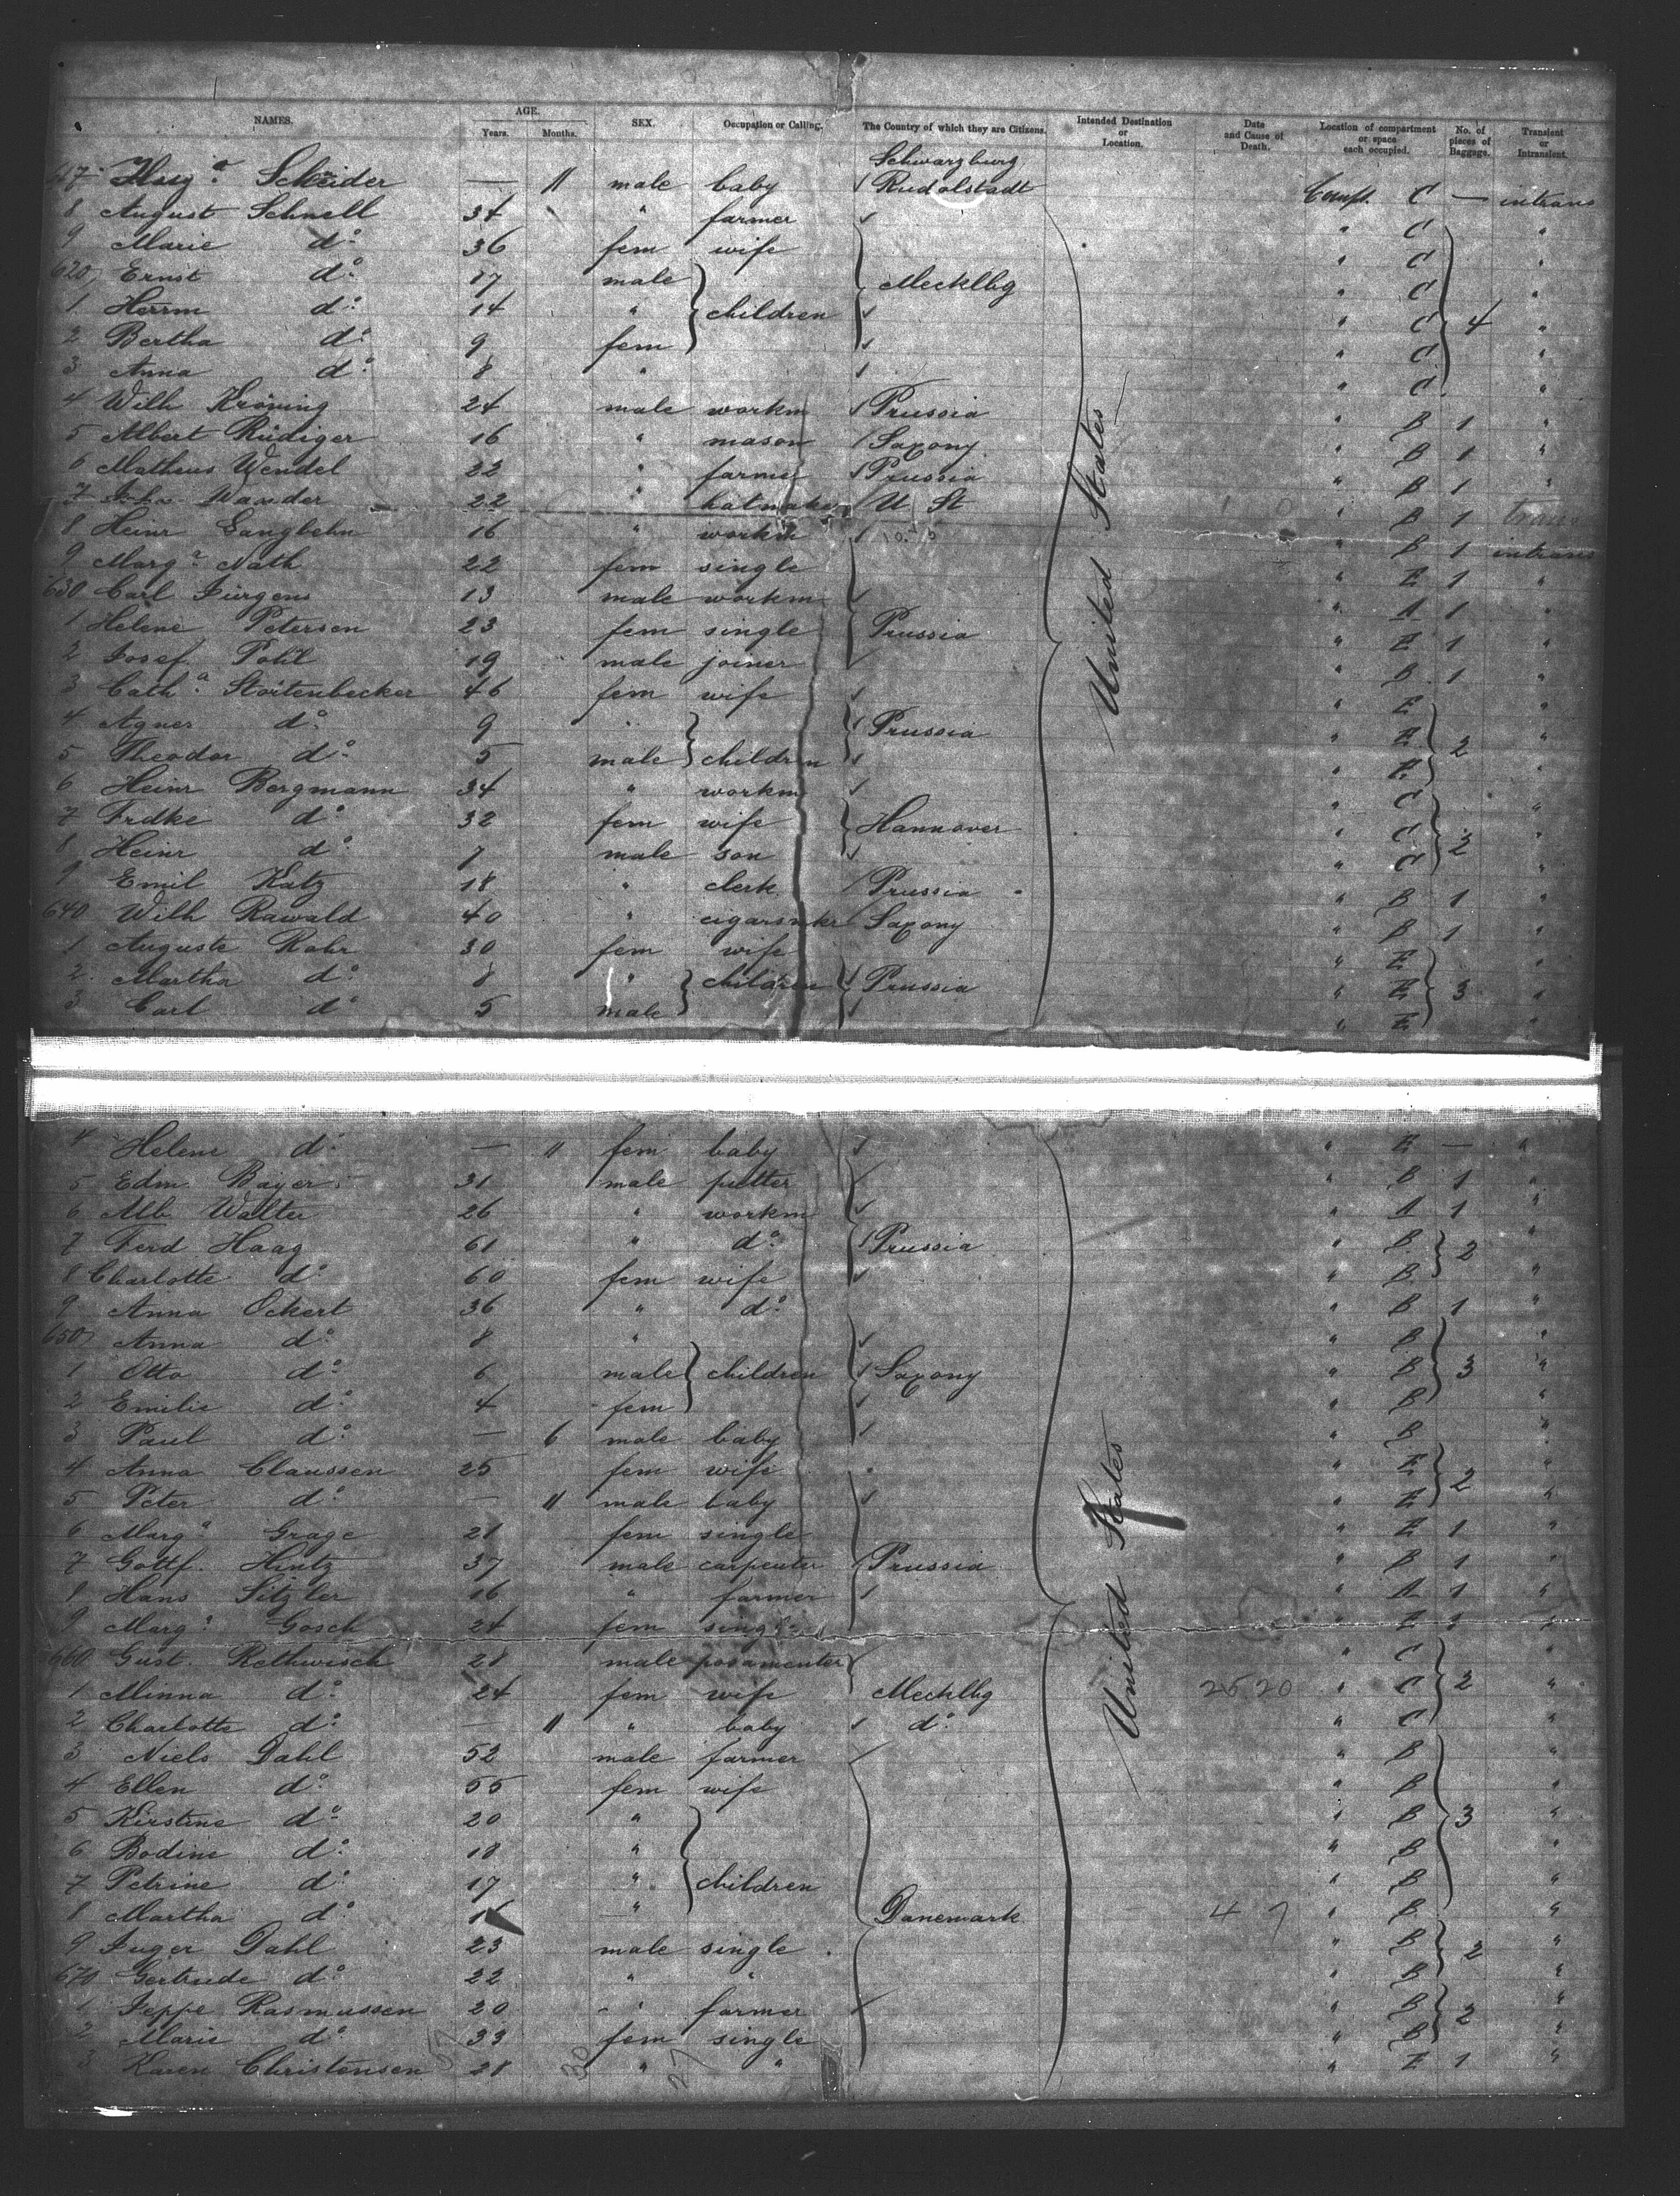 NAMES. AGE. Years. Months. SEX. Occupation or Calling. The Country of which they are Citizens. Intended Destination or Location. Date and Cause of Death. Location of compartment or space each occupied. No. of pieces of Baggage. Transient or Intransient.
Schwarzburg
— 11 male baby Rudolstadt Compt. C — intrans
8 August Schnell 34 " farmer " C "
9 Marie do. 36 fem wife " C "
620 Ernst do. 17 male Mecklbg " C "
1 Herrm do. 14 " children " C 4 "
2 Bertha do. 9 fem " C "
3 Anna do. 8 " " C "
4 Wilh Kröning 24 male workm Prussia " B 1 "
5 Albert Rüdiger 16 " mason Saxony " B 1 "
6 Matheus Wendel 22 " farmer Prussia " B 1 "
7 Wander 22 " hatmaker U St " B 1 trans
8 Heinr Gangbehn 16 " workm " B 1 intrans
9 Marga. Nath 22 fem single " E 1 "
630 Carl Jürgens 13 male workm " A 1 "
1 Helene Petersen 23 fem single Prussia " E 1 "
2 Josef Pohl 19 male joiner " B 1 "
3 Catha. Stortenbecker 46 fem wife " E "
4 Agnes do. 9 " Prussia " E "
5 Theodor do. 5 male children " E 2 "
6 Heinr Bergmann 34 " workm " C "
7 Frdke do. 32 fem wife Hannover " C "
8 Heinr do. 7 male son " C 2 "
9 Emil Katz 18 " clerk Prussia " B 1 "
640 Wilh Rawald 40 " cigarsmkr Saxony " B 1 "
1 Auguste Rohr 30 fem wife " E "
2 Martha do. 8 " children Prussia " E 3 "
3 Carl do 5 male " E "
United States
4 Helene do. — 11 fem baby " E — "
5 Edm. Bayer 31 male putter " B 1 "
6 Alb. Walter 26 " workm " A 1 "
7 Ferd Haag 61 " do. Prussia " B 2 "
8 Charlotte do. 60 fem wife " B "
9 Anna Ockert 36 " do. " B 1 "
650 Anna do. 8 " " B "
1 Otto do. 6 male children Saxony " B 3 "
2 Emilie do. 4 fem " B "
3 Paul do. — 6 male baby " B "
4 Anna Claussen 25 fem wife " E "
5 Peter do. — 11 male baby " E 2 "
6 Marga. Grage 21 fem single " E 1 "
7 Gottf. Hintz 37 male carpenter Prussia " B 1 "
8 Hans Sitzler 16 " farmer " A 1 "
9 Marga. Gosch 24 fem single " E 1 "
660 Gust. Rethwisch 28 male posamenter " C "
1 Minna do. 24 fem wife Mecklbg 26 20 " C 2 "
2 Charlotte do. — 11 " baby do. " C "
3 Niels Dahl 52 male farmer " B "
4 Ellen do. 55 fem wife " B "
5 Kirstine do. 20 " " B 3 "
6 Bodine do. 18 " " B "
7 Petrine do. 17 " children " B "
8 Martha do. " Danemark 4 7 " B "
9 Inger Dahl 23 male single " B 2 "
670 Gertrude do. 22 " " " B "
1 Jeppe Rasmussen 20 " farmer " B 2 "
2 Marie do. 33 fem single " B "
3 Karen Christensen 28 " " " E 1 "
United States